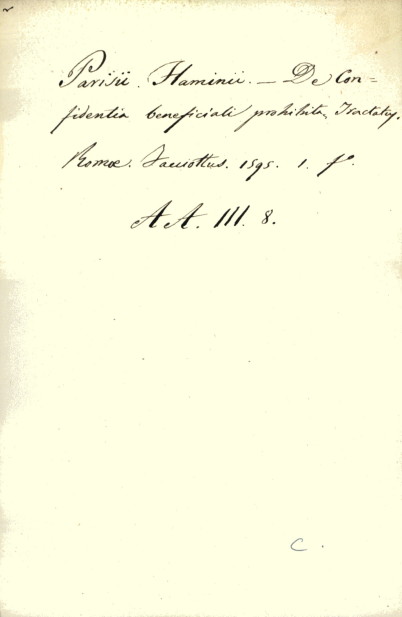 Parisii. Flaminii. — De Con=
fidentia beneficiali prohibita, Tractatus.
Romæ. Facciottus. 1595. 1. fº.
AA. III. 8.
C.